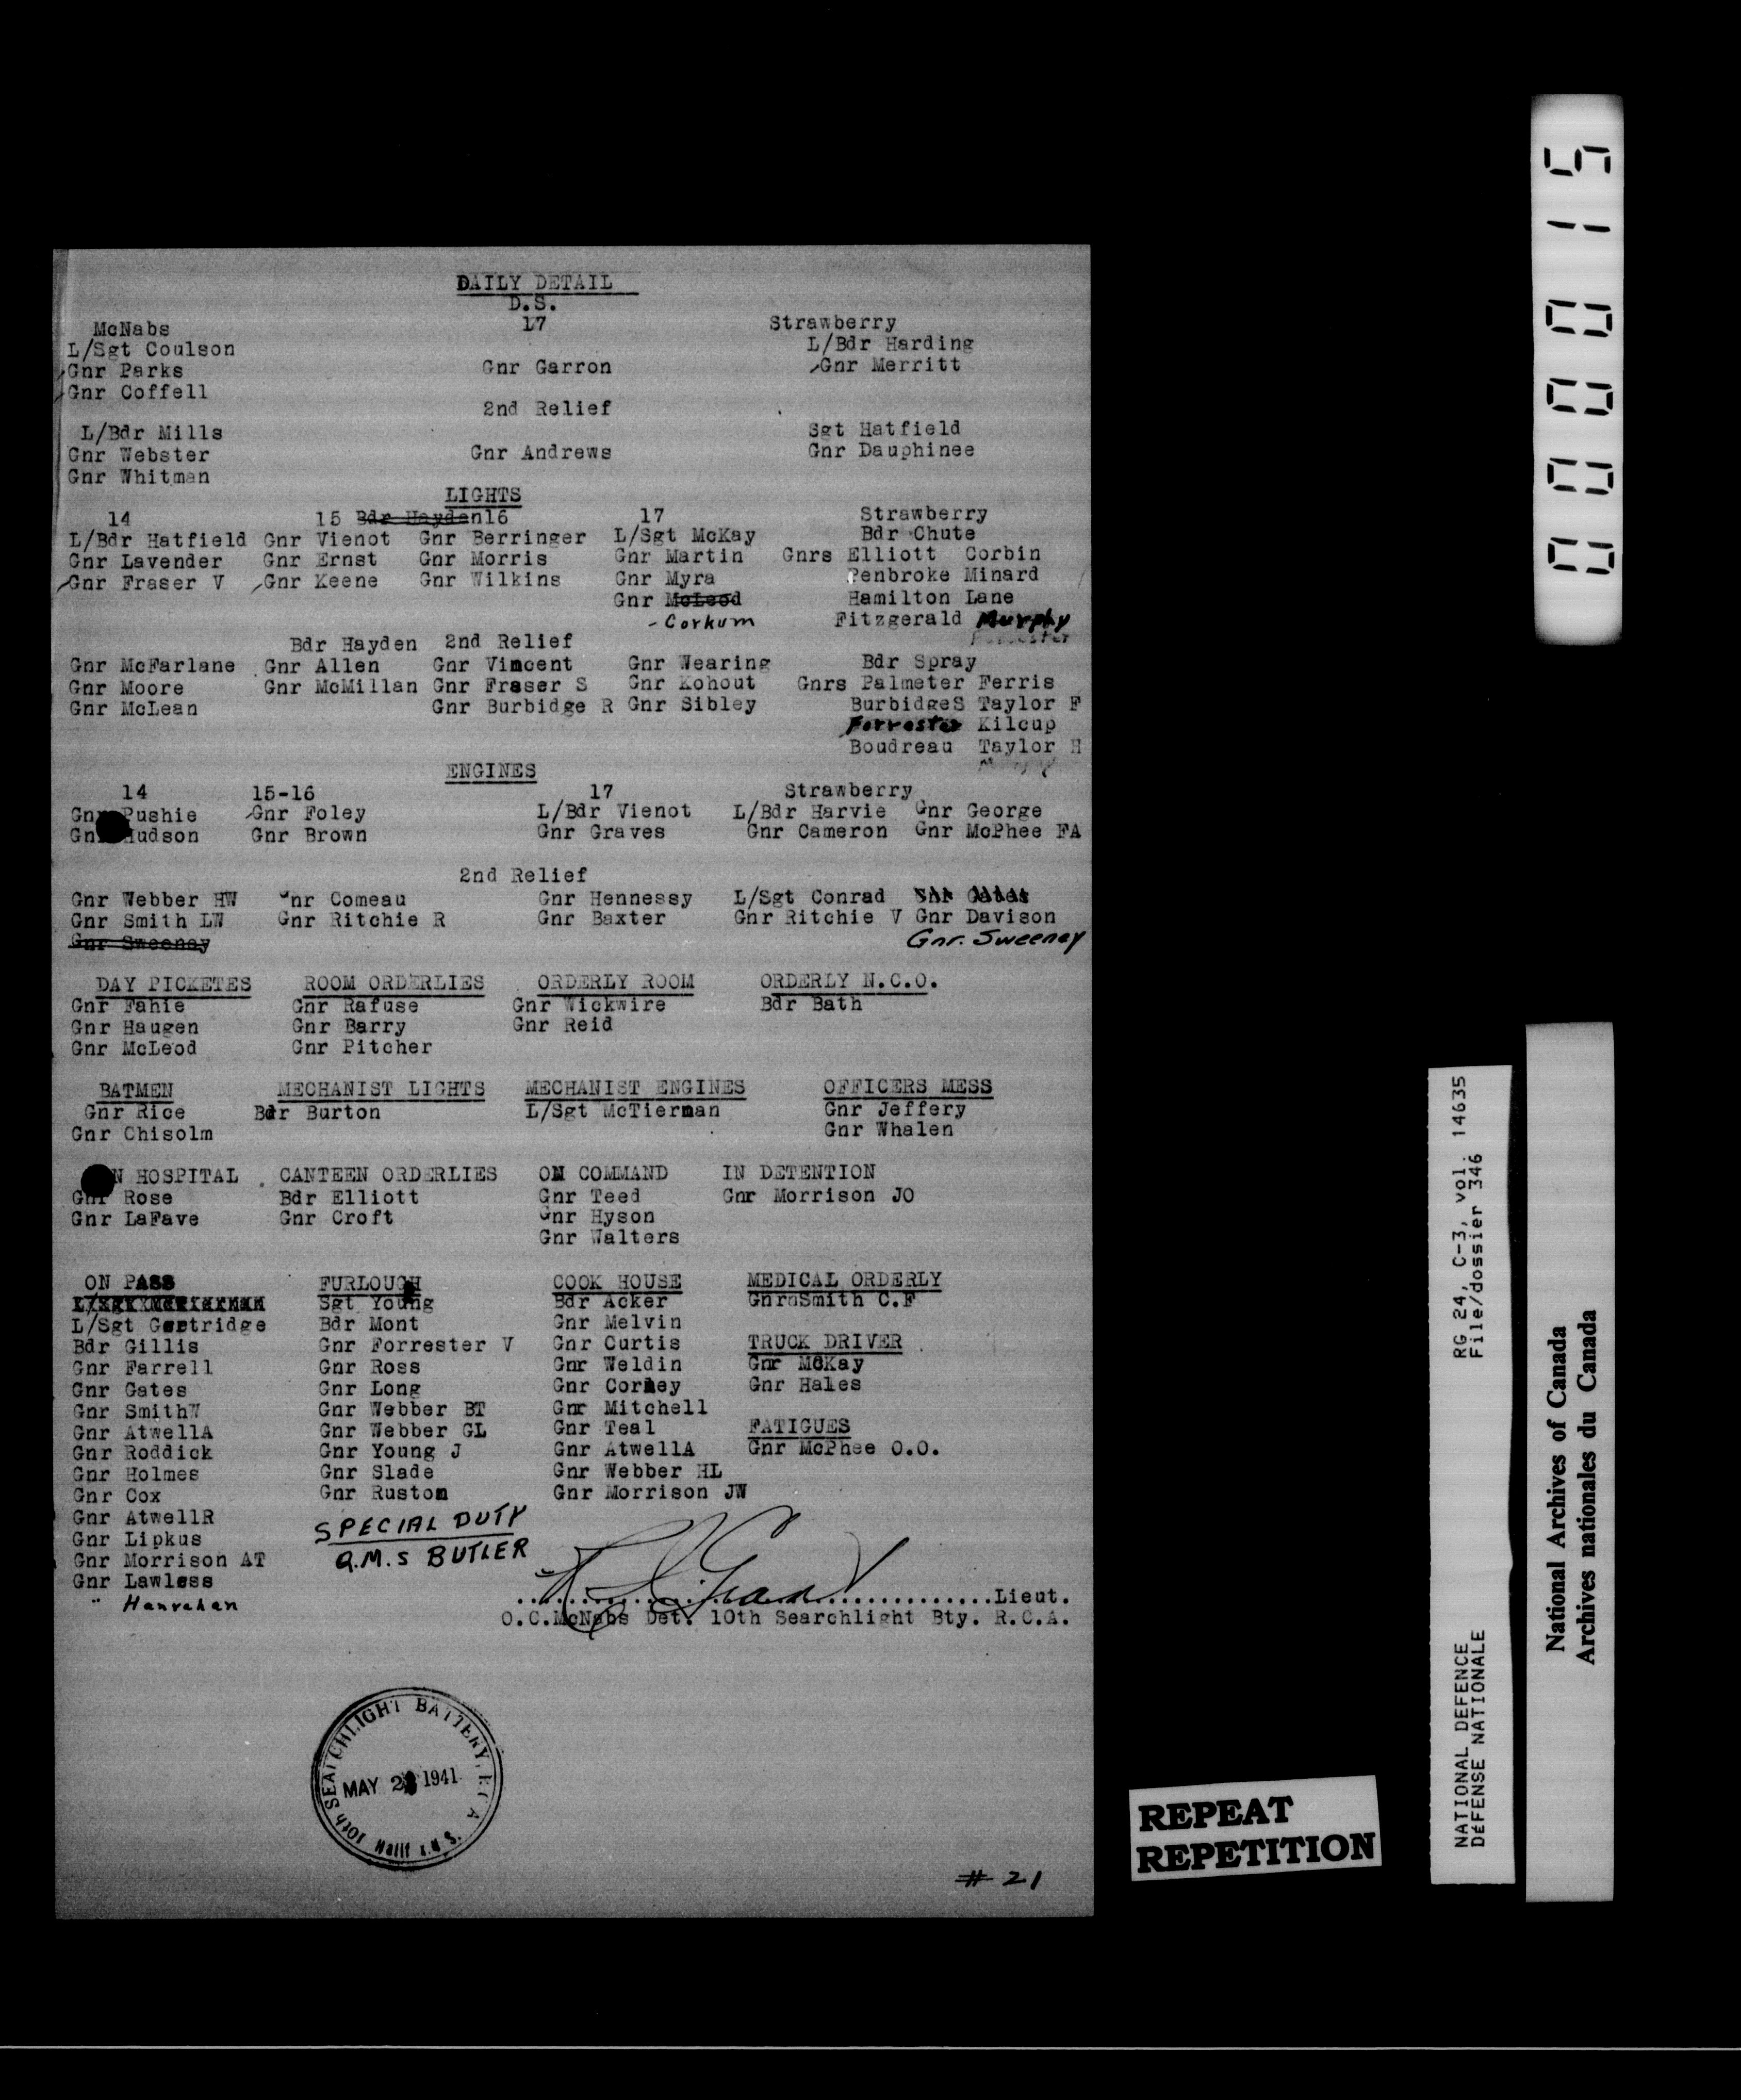 DAILY DETAIL
D.S.
McNabs 17 Strawberry
L/Sgt Coulson L/Bdr Harding
Gnr Parks Gnr Garron Gnr Merritt
Gnr Coffell
2nd Relief
L/Bdr Mills Sgt Hatfield
Gnr Webster Gnr Andrews Gnr Dauphinee
Gnr Whitman
LIGHTS
14 15 Bdr Hayden16 17 Strawberry
L/Bdr Hatfield Gnr Vienot Gnr Berringer L/Sgt McKay Bdr Chute
Gnr Lavender Gnr Ernst Gnr Morris Gnr Martin Gnrs Elliott Corbin
Gnr Fraser V Gnr Keene Gnr Wilkins Gnr Myra Penbroke Minard
Gnr McLeod Hamilton Lane
- Corkum Fitzgerald Murphy
Forrester
Bdr Hayden 2nd Relief
Gnr McFarlane Gnr Allen Gnr Vincent Gnr Wearing Bdr Spray
Gnr Moore Gnr McMillan Gnr Fraser S Gnr Kohout Gnrs Palmeter Ferris
Gnr McLean Gnr Burbidge R Gnr Sibley BurbidgeS Taylor F
Forrester Kilcup
Boudreau Taylor H
ENGINES
14 15-16 17 Strawberry
Gnr Pushie Gnr Foley L/Bdr Vienot L/Bdr Harvie Gnr George
Gnr Hudson Gnr Brown Gnr Graves Gnr Cameron Gnr McPhee FA
2nd Relief
Gnr Webber HW Gnr Comeau Gnr Hennessy L/Sgt Conrad Gnr Gates
Gnr Smith LW Gnr Ritchie R Gnr Baxter Gnr Ritchie V Gnr Davison
Gnr Sweeney Gnr. Sweeney
DAY PICKETES ROOM ORDERLIES ORDERLY ROOM ORDERLY N.C.O.
Gnr Fahie Gnr Rafuse Gnr Wickwire Bdr Bath
Gnr Haugen Gnr Barry Gnr Reid
Gnr McLeod Gnr Pitcher
BATMEN MECHANIST LIGHTS MECHANIST ENGINES OFFICERS MESS
Gnr Rice Bdr Burton L/Sgt McTiernan Gnr Jeffery
Gnr Chisolm Gnr Whalen
N HOSPITAL CANTEEN ORDERLIES ON COMMAND IN DETENTION
Gnr Rose Bdr Elliott Gnr Teed Gnr Morrison JO
Gnr LaFave Gnr Croft Gnr Hyson
Gnr Walters
ON PASS FURLOUGH COOK HOUSE MEDICAL ORDERLY
L/Sgt McTiernan Sgt Young Bdr Acker GnrnSmith C.F
L/Sgt Gertridge Bdr Mont Gnr Melvin
Bdr Gillis Gnr Forrester V Gnr Curtis TRUCK DRIVER
Gnr Farrell Gnr Ross Gnr Weldin Gnr McKay
Gnr Gates Gnr Long Gnr Corkey Gnr Hales
Gnr SmithW Gnr Webber BT Gnr Mitchell
Gnr AtwellA Gnr Webber GL Gnr Teal FATIGUES
Gnr Roddick Gnr Young J Gnr AtwellA Gnr McPhee O.O.
Gnr Holmes Gnr Slade Gnr Webber HL
Gnr Cox Gnr Ruston Gnr Morrison JW
Gnr AtwellR SPECIAL DUTY
Gnr Lipkus Q.M.S BUTLER
Gnr Morrison AT
Gnr Lawless
" Hanrahan ....................Lieut.
O.C.McNabs Det. 10th Searchlight Bty. R.C.A.
10th SEARCHLIGHT BATTERY, R.C.A.
MAY 2 1941
Halifax N.S.
# 21
REPEAT
REPETITION
000015
RG 24, C-3, vol. 14635
File/dossier 346
NATIONAL DEFENCE
DÉFENSE NATIONALE
National Archives of Canada
Archives nationales du Canada